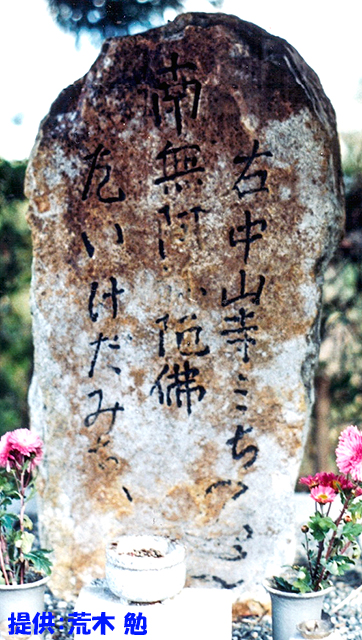 右中山寺ミち
南無阿弥陀佛
左いけだみち
提供：荒木 勉